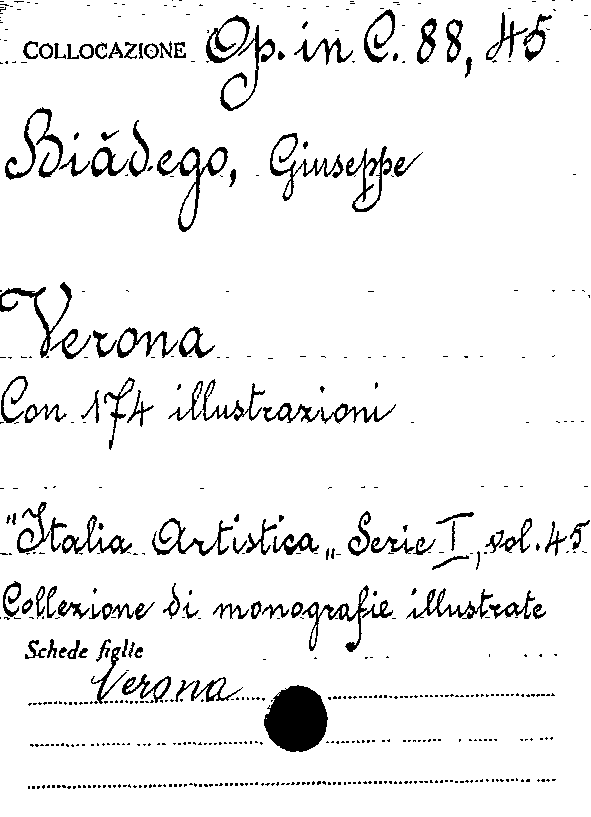 COLLOCAZIONE Op. in C. 88, 45
Biădego, Giuseppe
Verona
Con 174 illustrazioni
"Italia Artistica„ Serie I, vol. 45
Collezione di monografie illustrate
Schede figlie
Verona